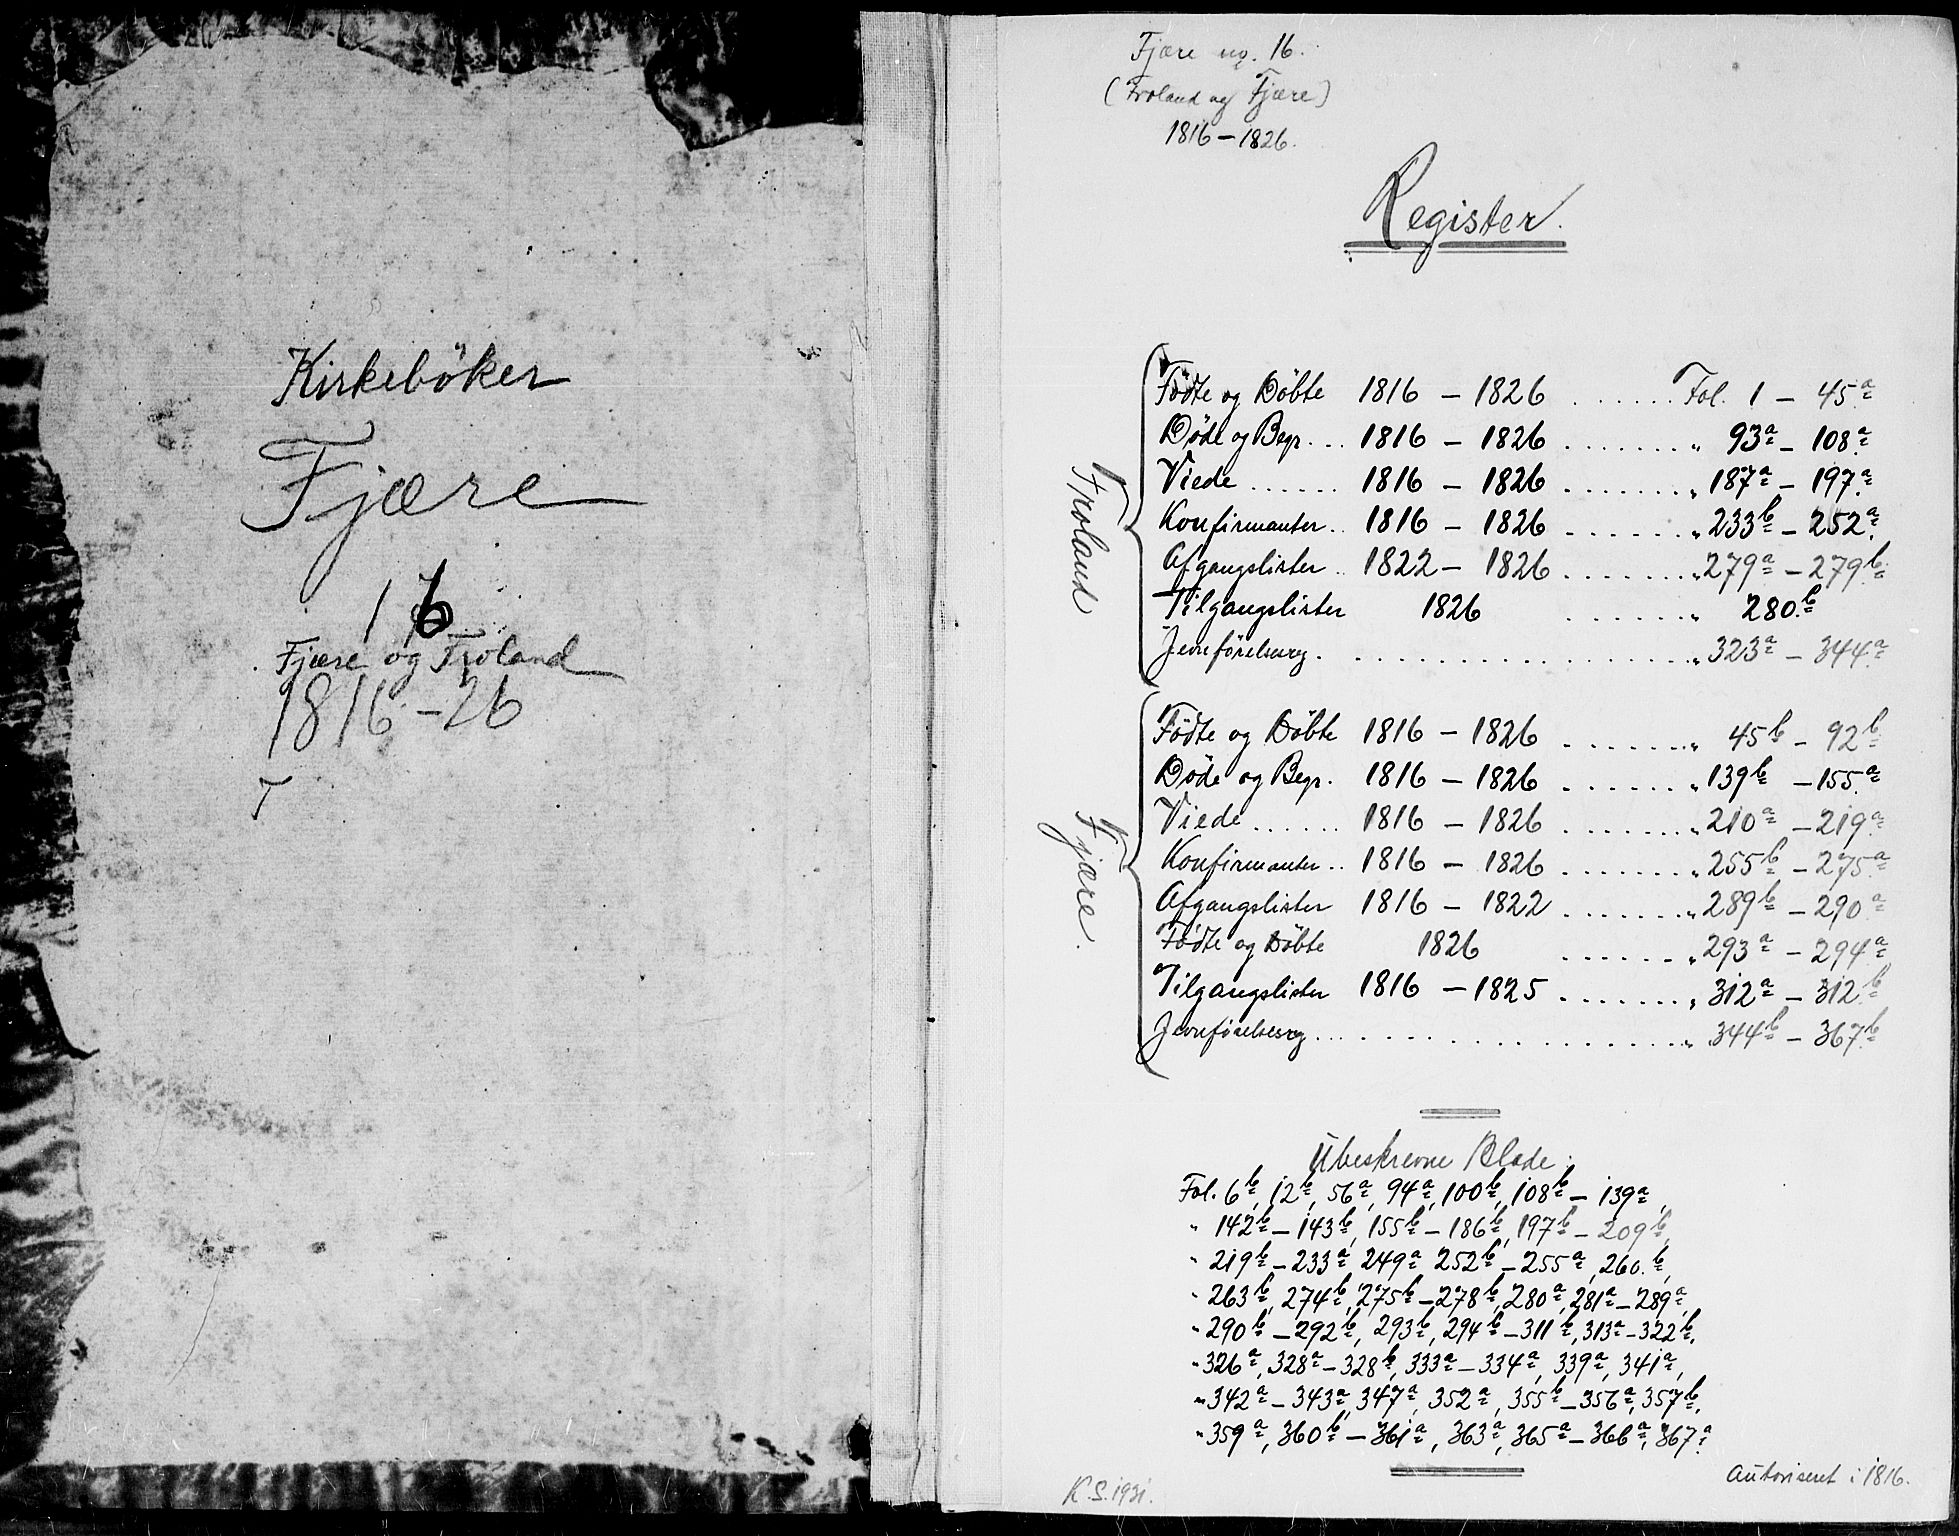 Kirkeböker
Fjære
16
Fjære og Froland
1816-26
Fjære no. 16.
(Froland og Fjære)
1816-1826.
Register.
Froland
Födte og Döbte 1816 - 1826 ....... Fol. 1 - 45a
Döde og Begr... 1816 - 1826 ....... " 93a - 108a
Viede ...... 1816 - 1826 ....... " 187a - 197a
Konfirmanter.. 1816 - 1826 ....... " 233b - 252a
Afgangslister.. 1822 - 1826 ....... " 279a - 279b
Tilgangslister 1826 ....... " 280b
Jevnförelsesreg. ....... " 323a - 344a
Fjære.
Födte og Döbte 1816 - 1826 ....... " 45b - 92b
Döde og Begr. 1816 - 1826 ....... " 139b - 155a
Viede ...... 1816 - 1826 ....... " 210a - 219a
Konfirmanter.. 1816 - 1826 ....... " 255b - 275a
Afgangslister 1816 - 1822 ....... " 289b - 290a
Födte og Döbte 1826 ....... " 293a - 294a
Tilgangslister 1816 - 1825 ....... " 312a - 312b
Jevnförelsesreg. ....... " 344b - 367b
Ubeskrevne Blade:
Fol. 6b, 12b, 56a, 94a, 100b, 108b - 139a,
" 142b - 143b, 155b - 186b, 197b - 209b,
" 219b - 233a, 249a, 252b - 255a, 260b,
" 263b, 274b, 275b - 278b, 280a, 281a - 289a,
" 290b - 292b, 293b, 294b - 311b, 313a - 322b,
" 326a, 328a - 328b, 333a - 334a, 339a, 341a,
" 342a - 343a, 347a, 352a, 355b - 356a, 357b,
" 359a, 360b - 361a, 363a, 365a - 366a, 367a
Autoriseret i 1816.
K.S. 1931.